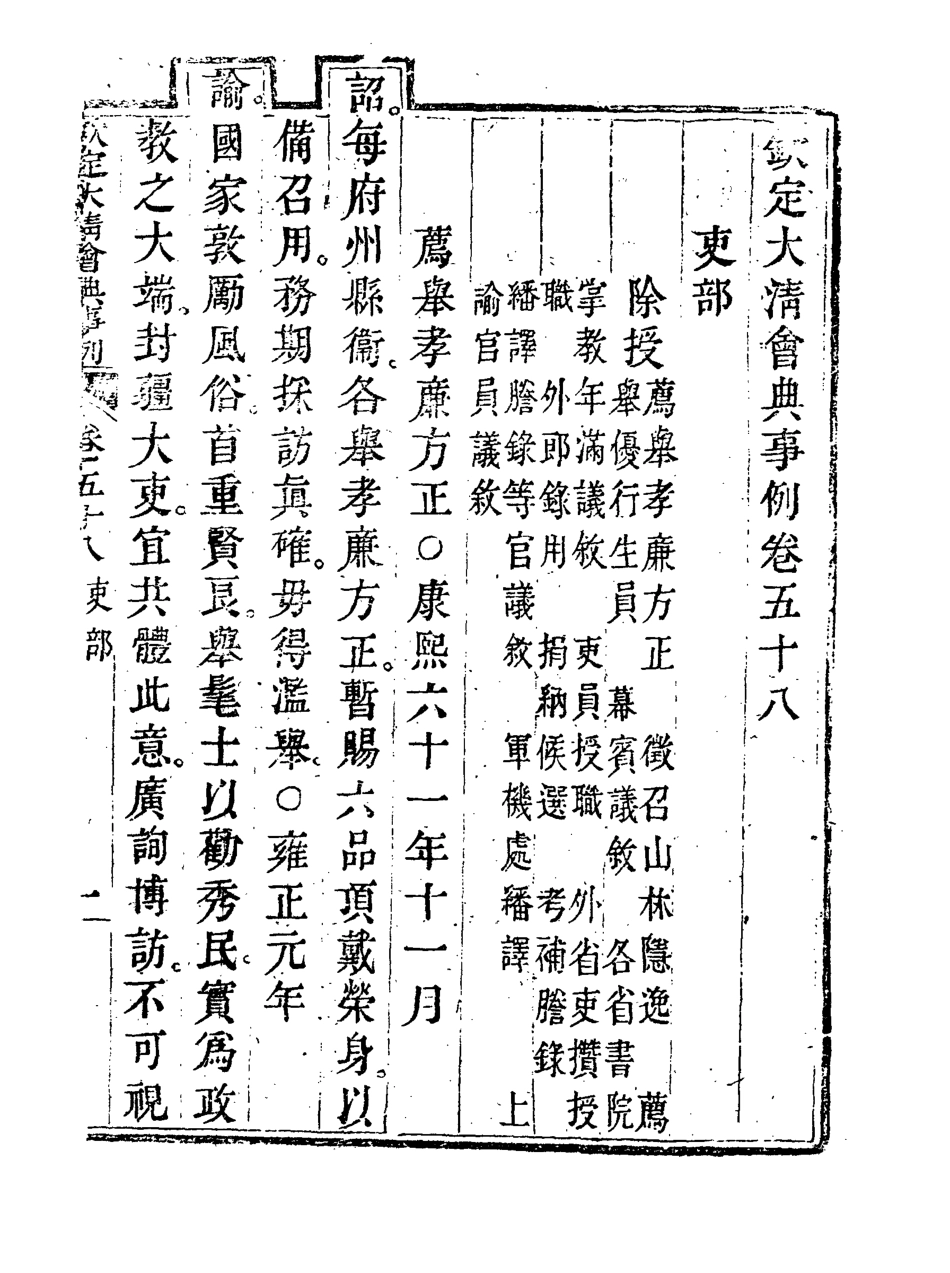 欽定大清會典事例卷五十八
吏部
除授 薦舉孝廉方正 徵召山林隱逸 薦
舉優行生員 幕賓議敘 各省書院
掌教年滿議敘 吏員授職 外省吏攢授
職 外郎錄用 捐納候選 考補謄錄
繙譯謄錄等官議敘 軍機處繙譯 上
諭官員議敘
薦舉孝廉方正○康熙六十一年十一月
詔。每府州縣衞。各舉孝廉方正。暫賜六品頂戴榮身。以
備召用。務期採訪眞確。毋得濫舉。○雍正元年
諭。國家敦勵風俗。首重賢良。舉髦士以勸秀民。實爲政
教之大端。封疆大吏。宜共體此意。廣詢博訪。不可視
欽定大清會典事例 卷五十八 吏部